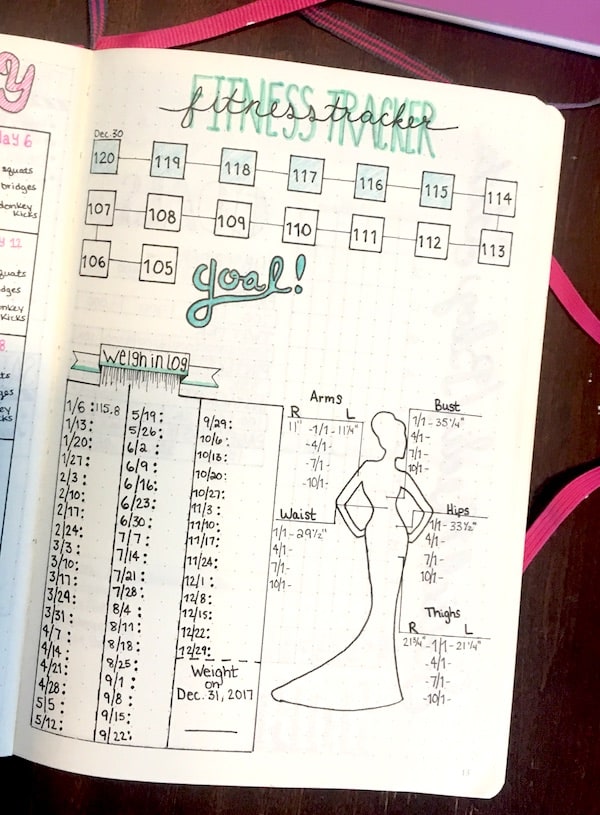 y
day 6
squats
bridges
donkey
kicks
12
Kicks
FITNESS TRACKER
fitness tracker
Dec. 30
120 119 118 117 116 115 114
107 108 109 110 111 112 113
106 105 goal!
Weigh in LOG
1/6 :115.8
1/13:
1/20:
1/27:
2/3 :
2/10:
2/17:
2/24:
3/3 :
3/10:
3/17:
3/24:
3/31:
4/7 :
4/14:
4/21:
4/28:
5/5 :
5/12:
5/19:
5/26:
6/2 :
6/9 :
6/16:
6/23:
6/30:
7/7 :
7/14:
7/21:
7/28:
8/4 :
8/11:
8/18:
8/25:
9/1 :
9/8 :
9/15:
9/22:
9/29:
10/6:
10/13:
10/20:
10/27:
11/3 :
11/10:
11/17:
11/24:
12/1 :
12/8:
12/15:
12/22:
12/29:
Weight
on
Dec. 31, 2017
Arms
R L
11" -1/1- 11 1/4"
-4/1-
-7/1-
-10/1-
Bust
1/1- 35 1/4"
4/1-
7/1-
10/1-
Waist
1/1- 29 1/2"
4/1-
7/1-
10/1-
Hips
1/1- 33 1/2"
4/1-
7/1-
10/1-
Thighs
R L
21 3/4" -1/1- 21 1/4"
-4/1-
-7/1-
-10/1-